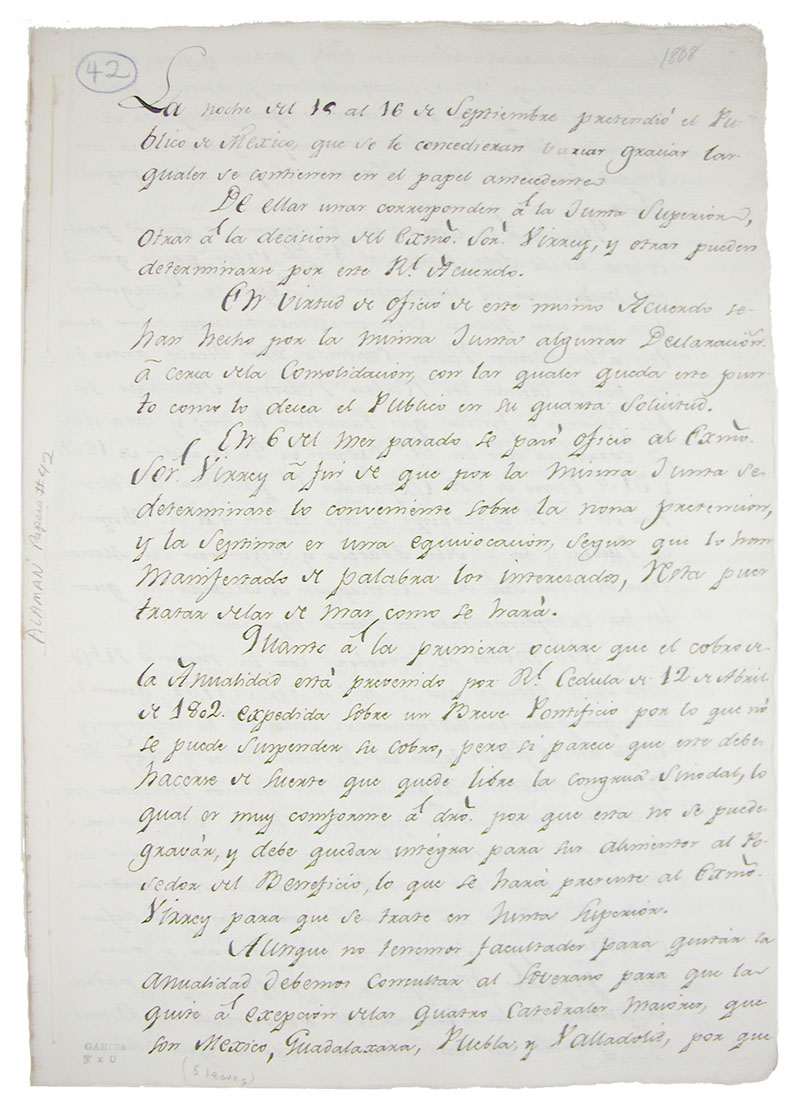 42
1808
La noche del 15 al 16 de Septiembre pretendió el Pu-
blico de Mexico, que se le concedieran varias gracias las-
quales se contienen en el papel antecedente
De ellas unas corresponden â la Junta Superior,
Otras â la decision del Exmõ. Sor. Virrey, y otras pueden
determinarse por este Rl. Acuerdo.
En virtud de oficio de este mismo Acuerdo se-
han hecho por la misma Junta algunas Declaracion.s
â cerca dela Consolidacion, con las quales queda este pun-
to como lo desea el Publico en su quarta Solicitud.
En 6 del mes pasado se pasó oficio al Exmõ.
Sor. Virrey â fin de que por la misma Junta se-
determinase lo conveniente sobre la nona pretencion,
y la Septima es una equivocacion, segun que lo han
Manifestado de palabra los interesados, Resta pues
tratar delas de mas como se hará.
Quanto â la primera ocurre que el cobro de-
la Anualidad está prevenido por Rl. Cedula de 12 de Abril
de 1802. expedida sobre un Breve Pontificio por lo que nó
se puede suspender su cobro, pero si parece que este debe
hacerse de suerte que quede libre la congrua Sinodal, lo
qual es muy comforme â dro. por que esta no se puede
gravár, y debe quedar intégra para sus alimentos al Po-
sedor del Beneficio, lo que se hará presente al Exmõ.
Virrey para que se trate en Junta Superior.
Aunque no tenemos facultades para quitár la
anualidad debemos Consultar al Soverano para que la
quite â exepcion delas quatro Catedrales Maiores, que
son Mexico, Guadalaxara, Puebla, y Valladolid, por que
ALAMÁN Papers #42
GARCIA
(5 leaves)